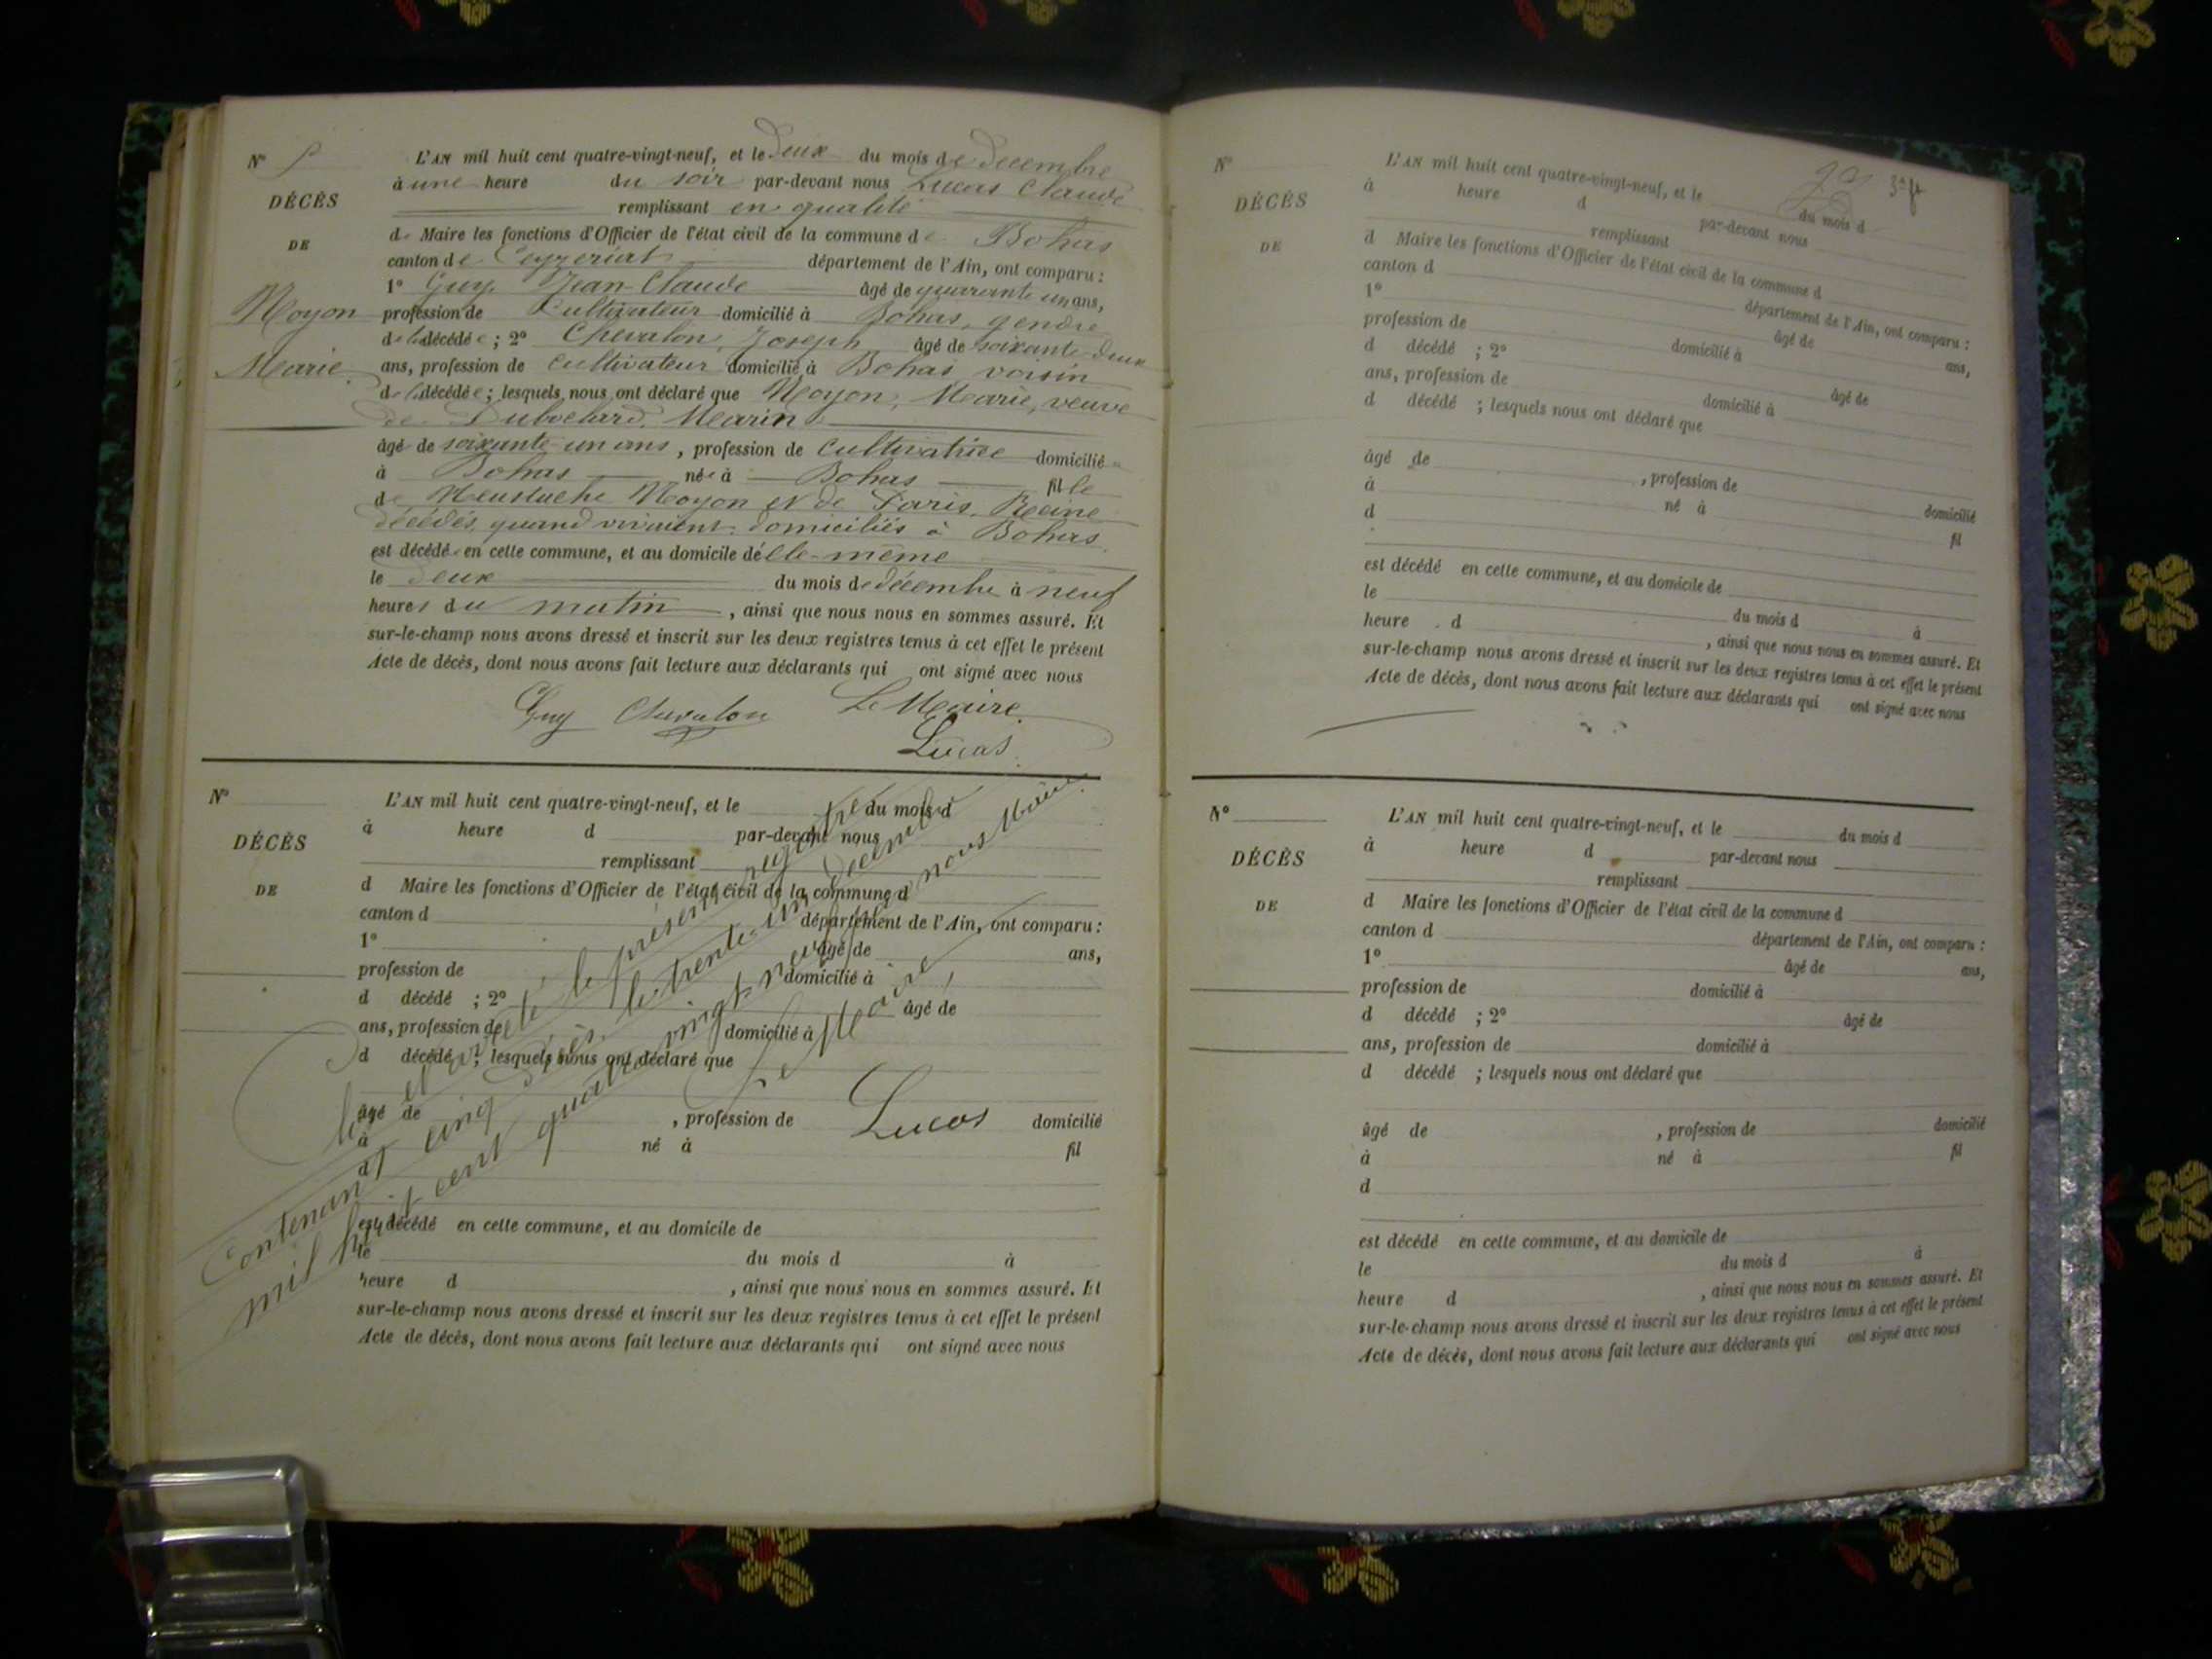 N°
L'AN mil huit cent quatre-vingt-neuf, et le deux du mois de décembre
DÉCÈS
à une heure du soir par-devant nous Lucas Claude
remplissant en qualité
DE
de Maire les fonctions d'Officier de l'état civil de la commune de Bohas
canton de Ceyzériat département de l'Ain, ont comparu :
1° Guy Jean-Claude âgé de quarante un ans,
Moyon
profession de Cultivateur domicilié à Bohas, gendre
de la décédée ; 2° Chevalon, Joseph âgé de soixante-deux
Marie
ans, profession de cultivateur domicilié à Bohas voisin
de la décédée ; lesquels nous ont déclaré que Moyon, Marie, veuve
de Dubochard, Marin
âgé de soixante-un ans, profession de cultivatrice domiciliée
à Bohas née à Bohas fille
de Moyon et de Paris, Reine
décédés, quand vivaient domiciliés à Bohas.
est décédée en cette commune, et au domicile d'elle-même
le deux du mois de décembre à neuf
heures du matin, ainsi que nous nous en sommes assuré. Et
sur-le-champ nous avons dressé et inscrit sur les deux registres tenus à cet effet le présent
Acte de décès, dont nous avons fait lecture aux déclarants qui ont signé avec nous
Guy Chevalon Le Maire
Lucas
N°
L'AN mil huit cent quatre-vingt-neuf, et le du mois d
DÉCÈS
à heure d par-devant nous
remplissant
DE
d Maire les fonctions d'Officier de l'état civil de la commune d
canton d département de l'Ain, ont comparu :
1° âgé de ans,
profession de domicilié à
d décédé ; 2° âgé de
ans, profession de domicilié à
d décédé ; lesquels nous ont déclaré que
âgé de , profession de domicilié
à né à fil
d
est décédé en cette commune, et au domicile de
le du mois d à
heure d , ainsi que nous nous en sommes assuré. Et
sur-le-champ nous avons dressé et inscrit sur les deux registres tenus à cet effet le présent
Acte de décès, dont nous avons fait lecture aux déclarants qui ont signé avec nous
et le présent registre
Contenant cinq le trente-un décembre
mil huit cent quatre vingt neuf nous Maire.
Le Maire,
Lucas
N°
L'AN mil huit cent quatre-vingt-neuf, et le du mois d
DÉCÈS
à heure d par-devant nous
remplissant
DE
d Maire les fonctions d'Officier de l'état civil de la commune d
canton d département de l'Ain, ont comparu :
1° âgé de ans,
profession de domicilié à
d décédé ; 2° âgé de
ans, profession de domicilié à
d décédé ; lesquels nous ont déclaré que
âgé de , profession de domicilié
à né à fil
d
est décédé en cette commune, et au domicile de
le du mois d à
heure d , ainsi que nous nous en sommes assuré. Et
sur-le-champ nous avons dressé et inscrit sur les deux registres tenus à cet effet le présent
Acte de décès, dont nous avons fait lecture aux déclarants qui ont signé avec nous
N°
L'AN mil huit cent quatre-vingt-neuf, et le du mois d
DÉCÈS
à heure d par-devant nous
remplissant
DE
d Maire les fonctions d'Officier de l'état civil de la commune d
canton d département de l'Ain, ont comparu :
1° âgé de ans,
profession de domicilié à
d décédé ; 2° âgé de
ans, profession de domicilié à
d décédé ; lesquels nous ont déclaré que
âgé de , profession de domicilié
à né à fil
d
est décédé en cette commune, et au domicile de
le du mois d à
heure d , ainsi que nous nous en sommes assuré. Et
sur-le-champ nous avons dressé et inscrit sur les deux registres tenus à cet effet le présent
Acte de décès, dont nous avons fait lecture aux déclarants qui ont signé avec nous